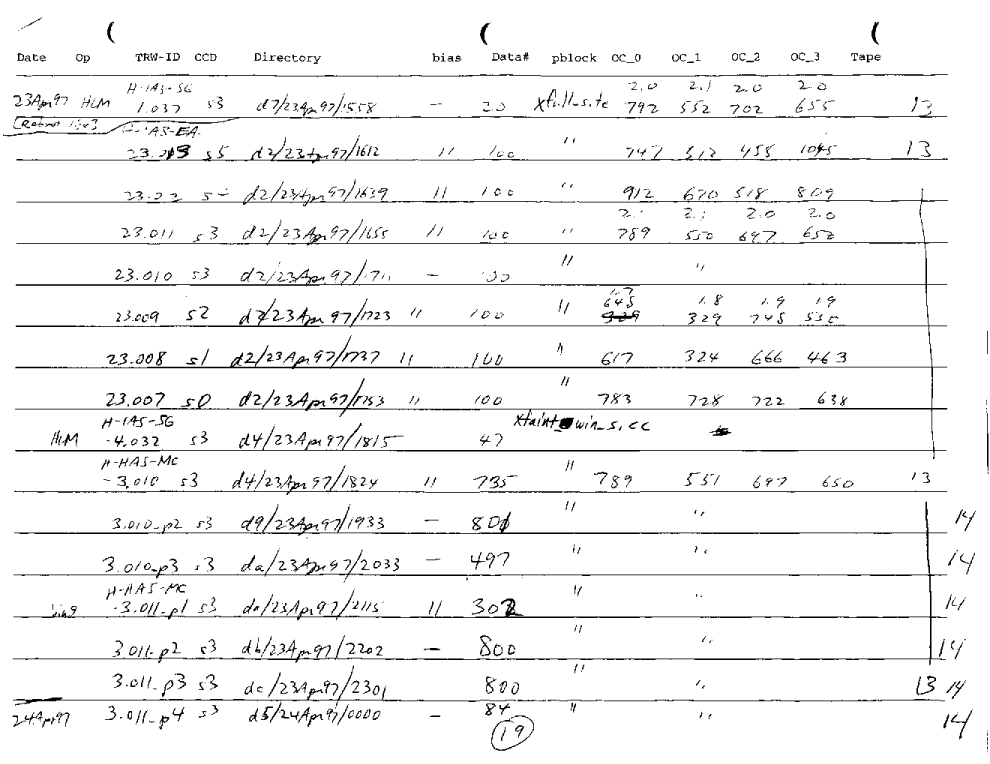 Date Op TRW-ID CCD Directory bias Data# pblock OC_0 OC_1 OC_2 OC_3 Tape
H-IAS-SG 2.0 2.1 2.0 2.0
23Apr97 HLM 1.037 s3 d7/23Apr97/1558 - 20 792 552 702 655 13
H-IAS-EA
s5 d2/23Apr97/1612 11 100 " 747 512 455 1045 13
23.22 d2/23Apr97/1639 11 100 " 912 670 518 809
2.1 2.1 2.0 2.0
23.011 s3 d2/23Apr97/1655 11 100 " 789 550 697 652
23.010 s3 - 100 " "
1.7 1.8 1.9 1.9
645
23.009 s2 11 100 11 329 745 530
23.008 s1 d2/23Apr97/1737 11 100 " 617 324 666 463
23.007 s0 d2/23Apr97/1753 11 100 " 783 728 722 638
H-IAS-SG
HLM -4.032 s3 d4/23Apr97/1815 47
H-HAS-MC
-3.010 s3 d4/23Apr97/1824 11 735 " 789 551 697 650 13
3.010-p2 s3 d9/23Apr97/1933 - 801 " " 14
3.010-p3 s3 da/23Apr97/2033 - 497 " " 14
H-HAS-MC
-3.011-p1 s3 da/23Apr97/2115 11 302 " " 14
3.011-p2 s3 db/23Apr97/2202 - 800 " " 14
3.011-p3 s3 dc/23Apr97/2301 800 " " 13 14
24Apr97 3.011-p4 s3 d5/24Apr97/0000 - 84 " " 14
19